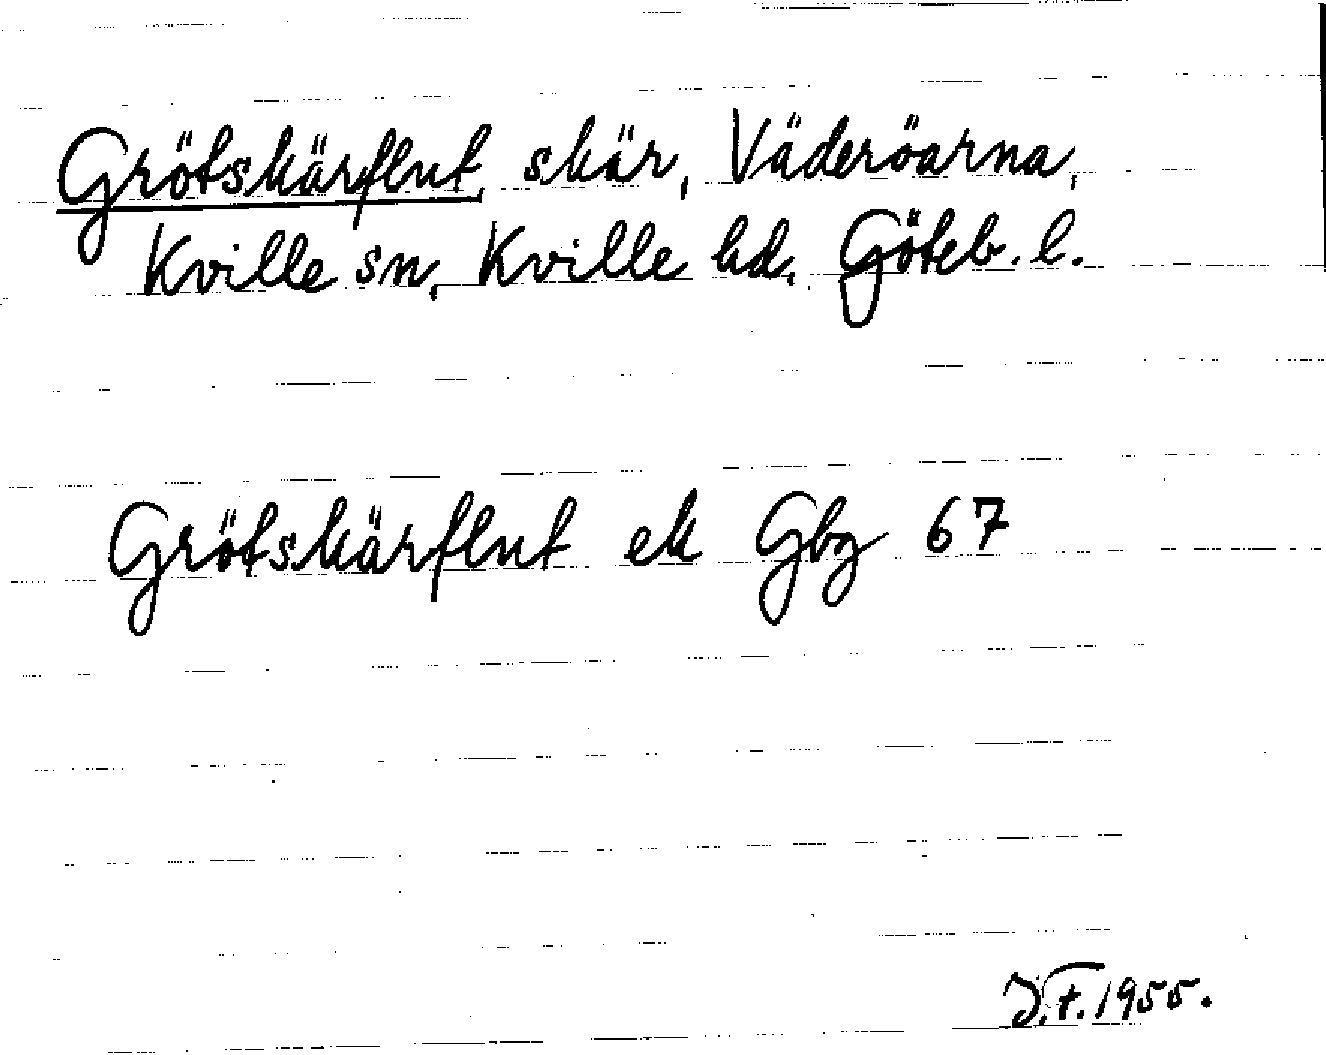 Grötskärflut, skär, Väderöarna,
Kville sn, Kville hd, Göteb. l.
Grötskärflut ek Gbg 67
J.F. 1955.